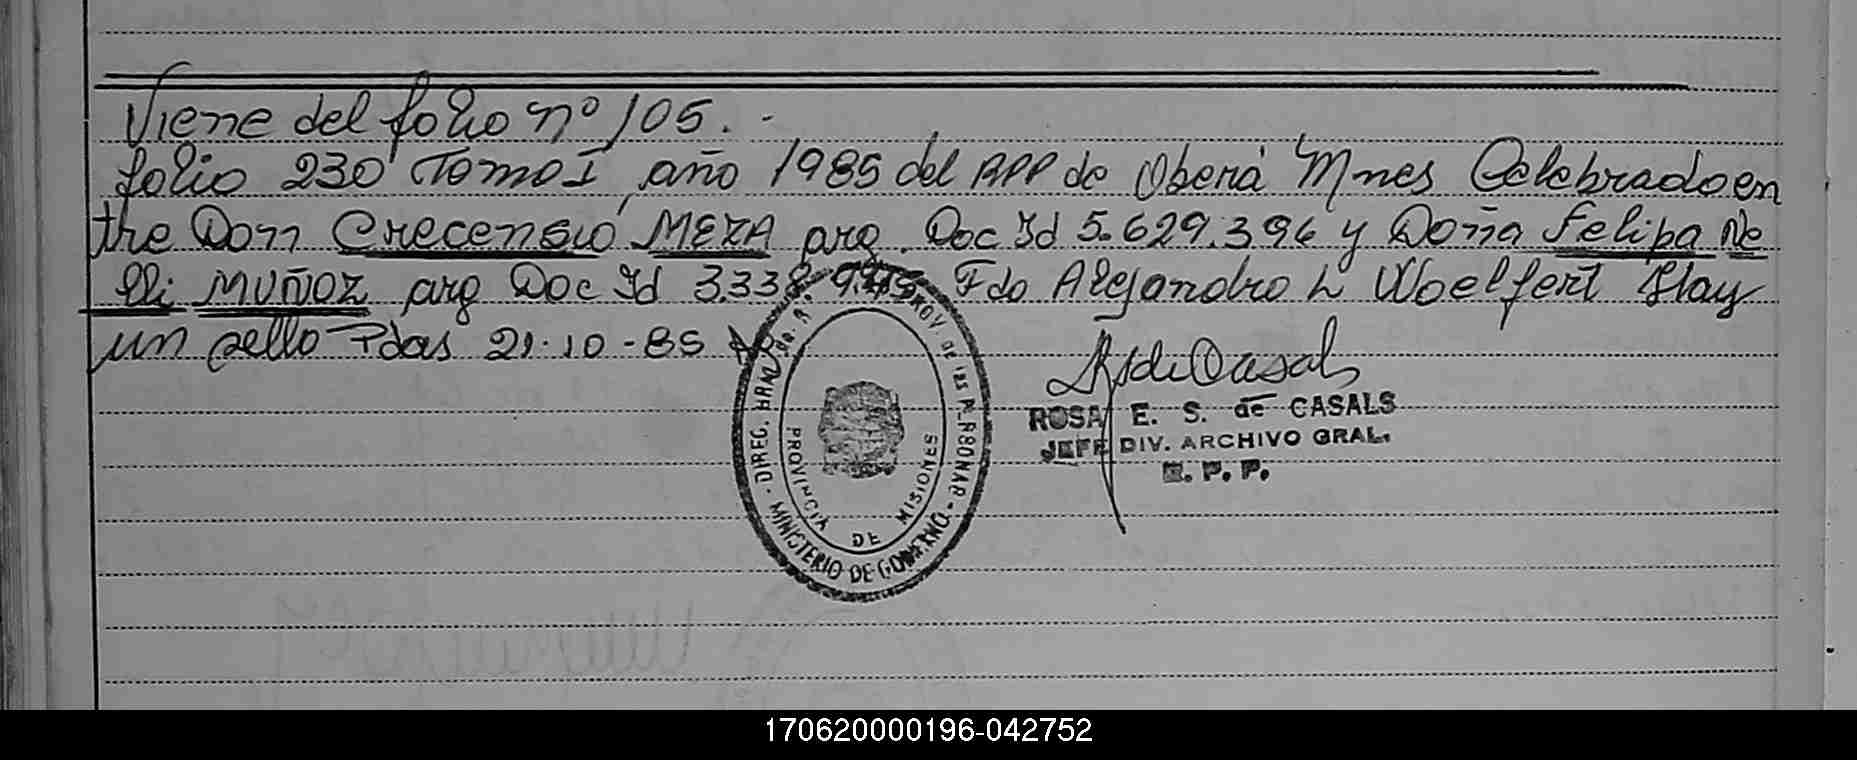 Viene del folio nº 105. -
folio 230 Tomo I, año 1985 del RPP de Oberá Mnes Celebrado en
tre Don Crecensio MEZA arg. Doc Id 5.629.396 y Doña Felipa Ne
lli MUÑOZ arg Doc Id 3.338. Fdo Alejandro L Woelfert Hay
un sello Pdas 21-10-85
DIREC. GRAL. PROV. DE las PERSONAS - MINISTERIO DE GOBIERNO -
PROVINCIA DE MISIONES
RS de Casals
ROSA E. S. de CASALS
JEFE DIV. ARCHIVO GRAL.
R. P. P.
170620000196-042752